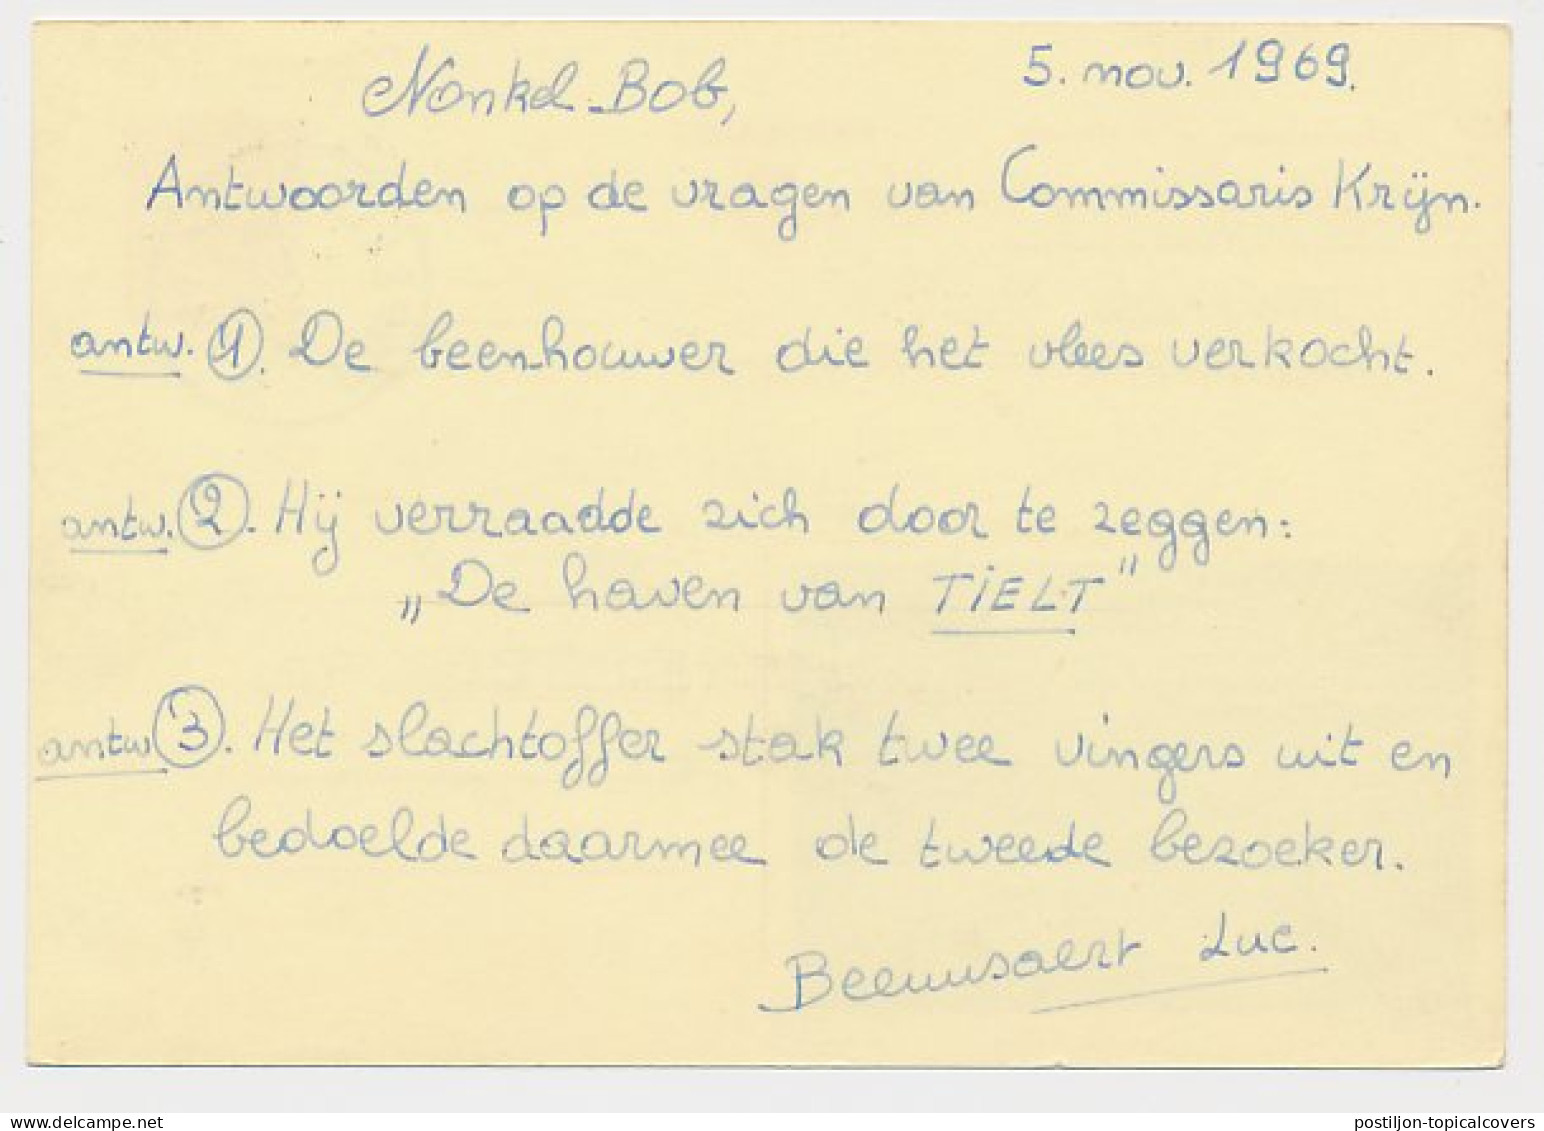 5. nov. 1969.
Nonkel Bob,
Antwoorden op de vragen van Commissaris Krijn.
antw. 1. De beenhouwer die het vlees verkocht.
antw. 2. Hij verraadde zich door te zeggen:
„De haven van TIELT"
antw 3. Het slachtoffer stak twee vingers uit en
bedoelde daarmee de tweede bezoeker.
Luc.
delcampe.net
postiljon-topicalcovers